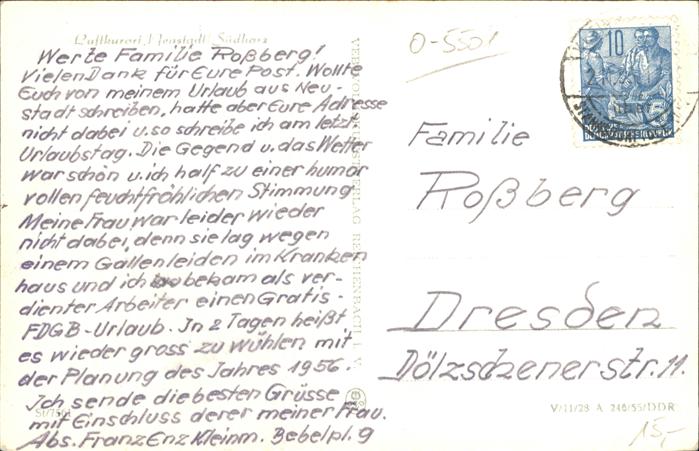 Luftkurort Neustadt/Südharz
Werte Familie Roßberg!
Vielen Dank für Eure Post. Wollte
Euch von meinem Urlaub aus Neu-
stadt schreiben, hatte aber Eure Adresse
nicht dabei u. so schreibe ich am letzt.
Urlaubstag. Die Gegend u. das Wetter
war schön u. ich half zu einer humor
vollen feuchtfröhlichen Stimmung
Meine Frau war leider wieder
nicht dabei, denn sie lag wegen
einem Gallenleiden im Kranken
haus und ich bekam als ver-
dienter Arbeiter einen Gratis-
FDGB-Urlaub. In 2 Tagen heißt
es wieder gross zu wühlen mit
der Planung des Jahres 1956.
Ich sende die besten Grüsse
mit Einschluss derer meiner Frau.
Abs. Franz Enz Kleinm. Bebelpl. 9
REICHENBACH I. V.
O-5501
10
Familie
Roßberg
Dresden
Dölzschenerstr. 11.
V/11/28 A 246/55/DDR
15,-